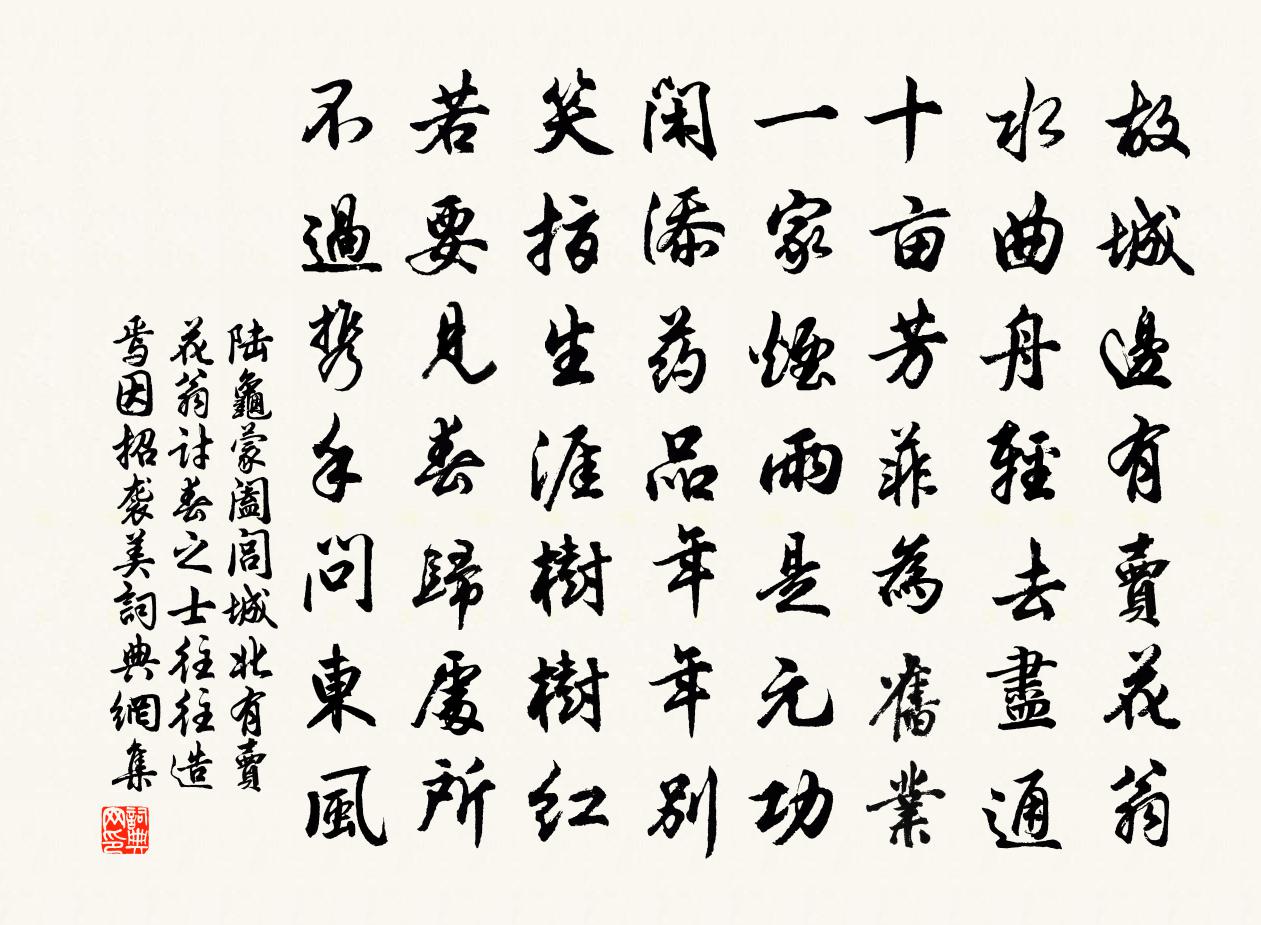 故城邊有賣花翁
水曲舟輕去盡通
十亩芳菲為舊業
一家煙雨是元功
閑添药品年年別
笑指生涯樹樹红
若要見春歸處所
不過携手問東風
陆龜蒙阖闾城北有賣
花翁討春之士往往造
焉因招袭美詞典網集
詞典网印